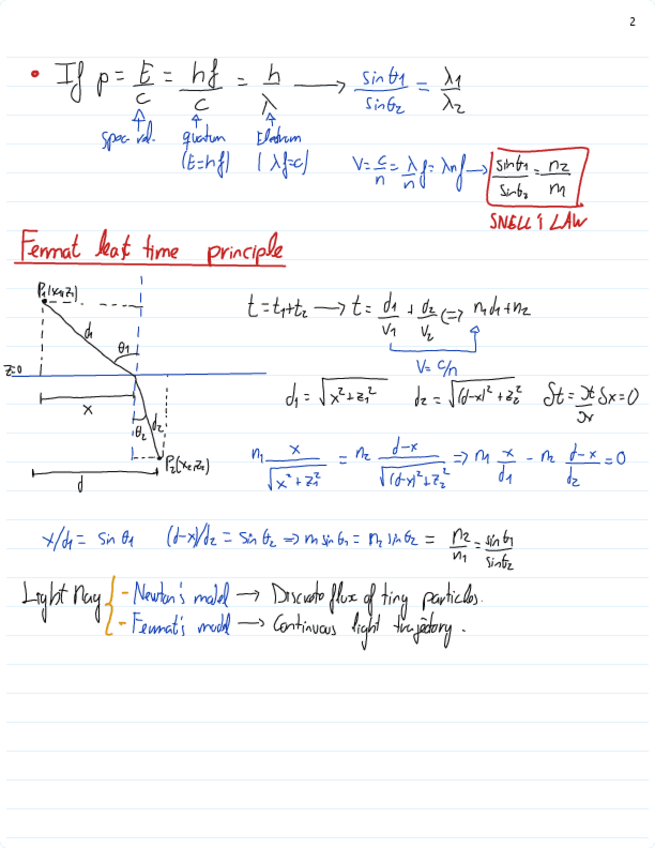 2
• If p = E/c = hf/c = h/λ ⟶ sinθ1/sinθ2 = λ1/λ2
quantum
(E=hf) (λf=c)
V = c/n = λ/n f = λn f ⟶ sinθ1/sinθ2 = n2/n1
SNELL'S LAW
Fermat least time principle
P1(x1,z1)
t = t1+t2 ⟶ t = d1/V1 + d2/V2 <=> n1d1+n2
d1
θ1
V = c/n
z=0
d1 = √(x²+z1²) d2 = √((d-x)²+z2²) δt = ∂t/∂x δx = 0
x
θ2
d2
P2(x2,z2)
d
n1 x/√(x²+z1²) = n2 (d-x)/√((d-x)²+z2²) => n1 x/d1 - n2 (d-x)/d2 = 0
x/d1 = sin θ1 (d-x)/d2 = sin θ2 => n1 sin θ1 = n2 sin θ2 = n2/n1 = sinθ1/sinθ2
Light Ray { - Newton's model ⟶ Discrete flux of tiny particles.
- Fermat's model ⟶ Continuous light trajectory.